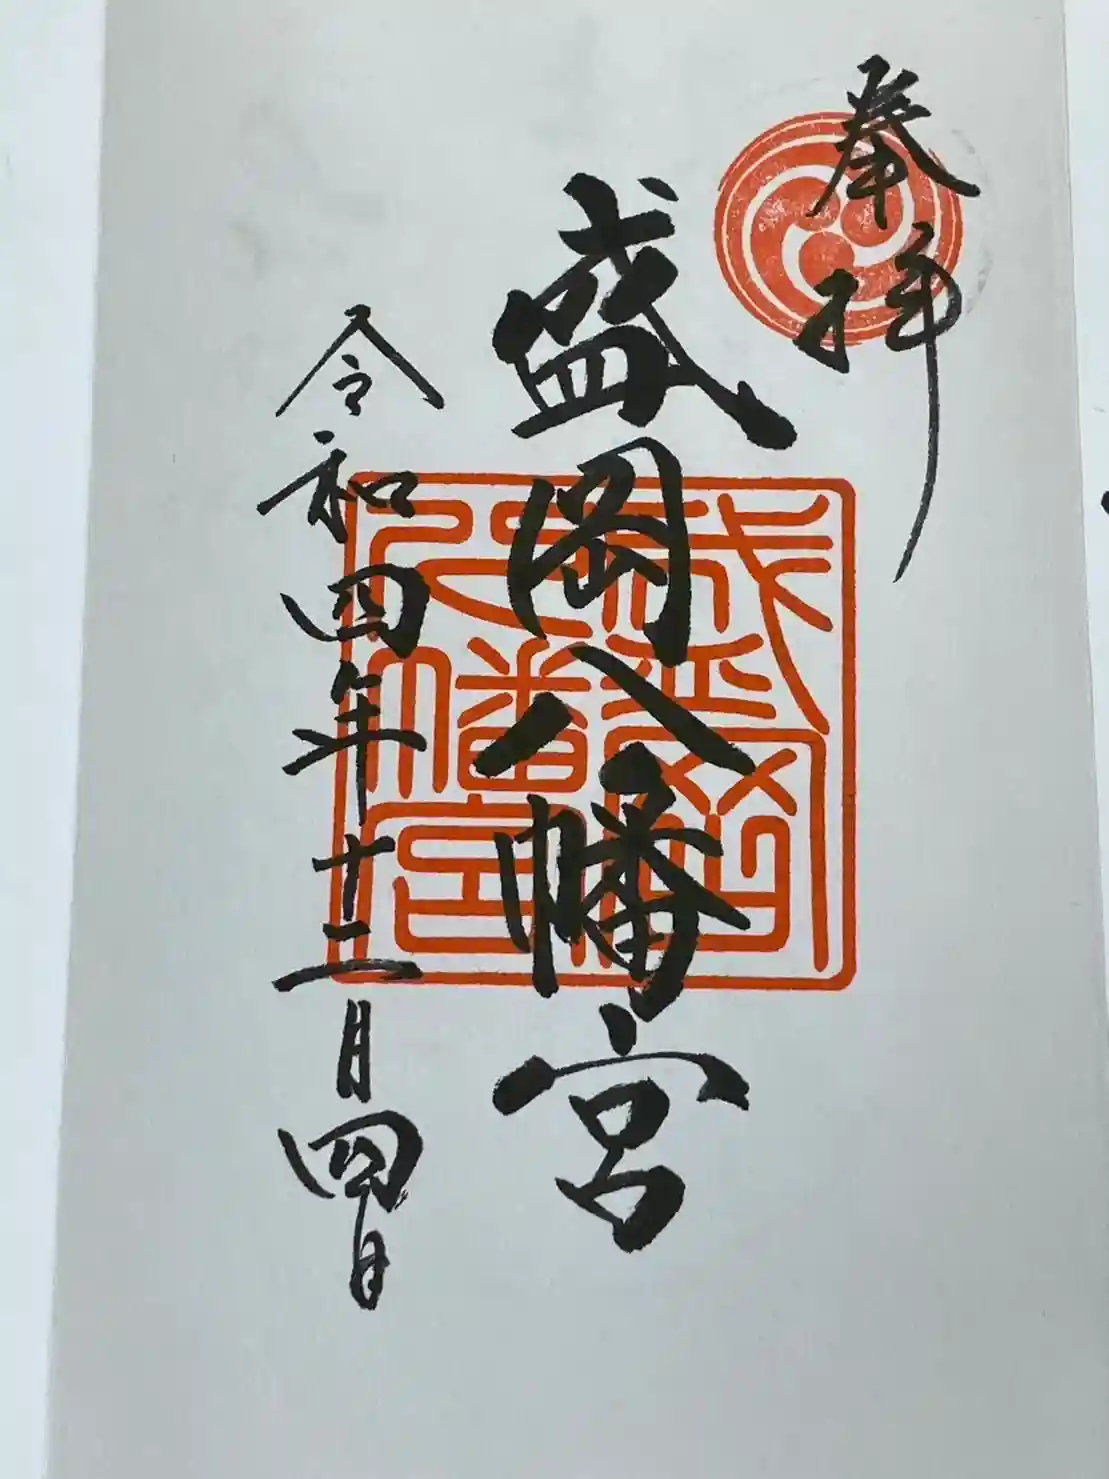 奉拝
盛岡八幡宮
令和四年十二月四日
盛岡八幡宮